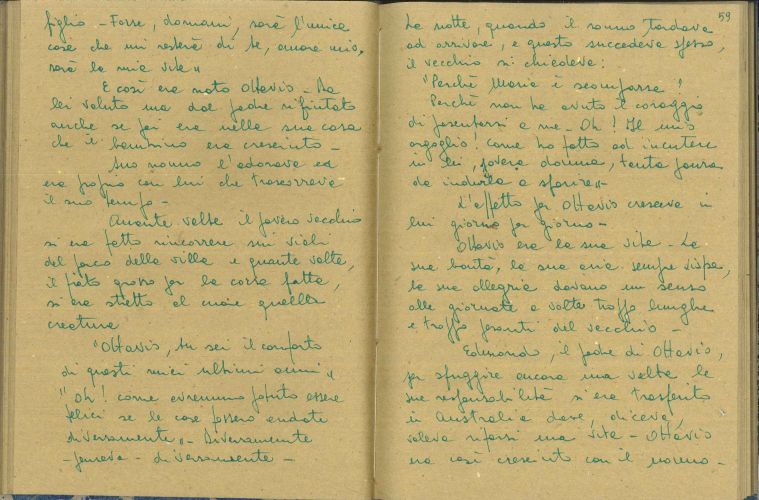 figlio - Forse, domani, sarà l'unica
cosa che mi resterà di te, amore mio,
sarà la mia vita"
E così era nato Ottavio - Da
lei voluto ma dal padre rifiutato
anche se poi era nella sua casa
che il bambino era cresciuto -
Suo nonno l'adorava ed
era proprio con lui che trascorreva
il suo tempo -
Quante volte il povero vecchio
si era fatto rincorrere sui viali
del parco della villa e quante volte,
il fiato grosso per la corsa fatta,
si era stretto al cuore quella
creatura
"Ottavio, tu sei il conforto
di questi miei ultimi anni"
"Oh! come avremmo potuto essere
felici se le cose fossero andate
diversamente" - Diversamente
- pensava - diversamente -
59
La notte, quando il sonno tardava
ad arrivare, e questo succedeva spesso,
il vecchio si chiedeva:
"Perché Maria è scomparsa?
Perché non ha avuto il coraggio
di presentarsi a me - Oh! Il mio
orgoglio! come ho fatto ad incutere
in lei, povera donna, tanta paura
da indurla a sparire" -
L'affetto per Ottavio cresceva in
lui giorno per giorno -
Ottavio era la sua vita - La
sua bontà, la sua aria sempre vispa,
la sua allegria davano un senso
alle giornate a volte troppo lunghe
e troppo pesanti del vecchio -
Edmondo, il padre di Ottavio,
per sfuggire ancora una volta le
sue responsabilità si era trasferito
in Australia dove, diceva,
voleva rifarsi una vita - Ottavio
era così cresciuto con il nonno -